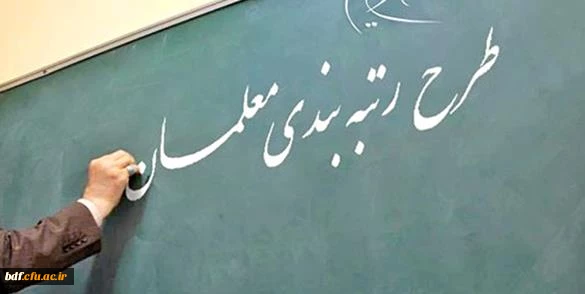 طرح رتبه بندی معلمان
bdf.cfu.ac.ir